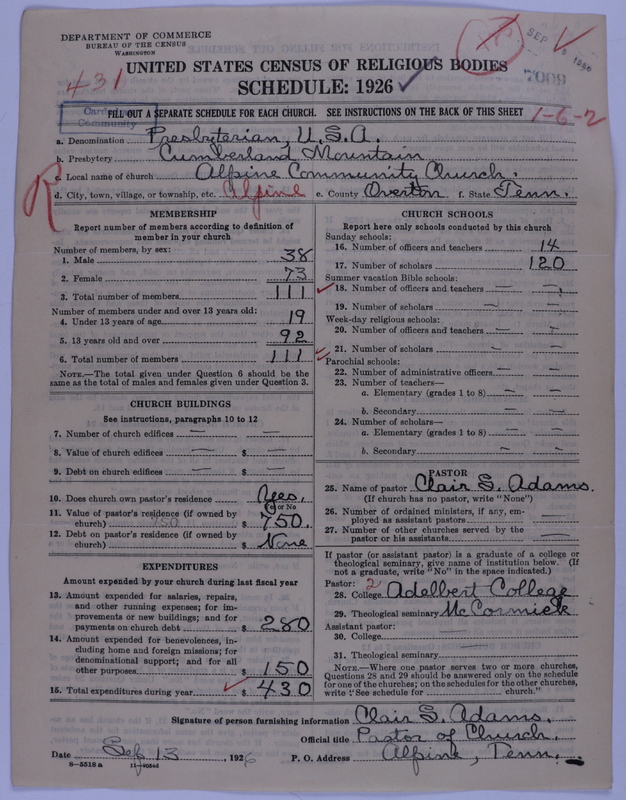 DEPARTMENT OF COMMERCE
BUREAU OF THE CENSUS
WASHINGTON
431
SEP
7009
UNITED STATES CENSUS OF RELIGIOUS BODIES
SCHEDULE: 1926
FILL OUT A SEPARATE SCHEDULE FOR EACH CHURCH. SEE INSTRUCTIONS ON THE BACK OF THIS SHEET
1-6-2
Community
a. Denomination Presbyterian, U.S.A.
b. Presbytery Cumberland Mountain
c. Local name of church Alpine Community Church.
d. City, town, village, or township, etc. Alpine e. County Overton f. State Tenn.
R
MEMBERSHIP
Report number of members according to definition of
member in your church
Number of members, by sex:
1. Male 38
2. Female 73
3. Total number of members 111
Number of members under and over 13 years old:
4. Under 13 years of age 19
5. 13 years old and over 92
6. Total number of members 111
NOTE.—The total given under Question 6 should be the
same as the total of males and females given under Question 3.
CHURCH BUILDINGS
See instructions, paragraphs 10 to 12
7. Number of church edifices — —
8. Value of church edifices — $ —
9. Debt on church edifices — $ —
10. Does church own pastor's residence Yes.
Yes or No
11. Value of pastor's residence (if owned by
church) 750 $ 750.
12. Debt on pastor's residence (if owned by
church) $ None
EXPENDITURES
Amount expended by your church during last fiscal year
13. Amount expended for salaries, repairs,
and other running expenses; for im-
provements or new buildings; and for
payments on church debt $ 280
14. Amount expended for benevolences, in-
cluding home and foreign missions; for
denominational support; and for all
other purposes $ 150
15. Total expenditures during year $ 430
CHURCH SCHOOLS
Report here only schools conducted by this church
Sunday schools:
16. Number of officers and teachers 14
17. Number of scholars 120
Summer vacation Bible schools:
18. Number of officers and teachers — —
19. Number of scholars — —
Week-day religious schools:
20. Number of officers and teachers — —
21. Number of scholars — —
Parochial schools:
22. Number of administrative officers — —
23. Number of teachers—
a. Elementary (grades 1 to 8) — —
b. Secondary — —
24. Number of scholars—
a. Elementary (grades 1 to 8) — —
b. Secondary — —
PASTOR
25. Name of pastor Clair S. Adams.
(If church has no pastor, write "None")
26. Number of ordained ministers, if any, em-
ployed as assistant pastors —
27. Number of other churches served by the
pastor or his assistants —
If pastor (or assistant pastor) is a graduate of a college or
theological seminary, give name of institution below. (If
not a graduate, write "No" in the space indicated.)
Pastor: 2
28. College Adelbert College
29. Theological seminary McCormick
Assistant pastor:
30. College —
31. Theological seminary —
NOTE.—Where one pastor serves two or more churches,
Questions 28 and 29 should be answered only on the schedule
for one of the churches; on the schedules for the other churches,
write "See schedule for church."
Signature of person furnishing information Clair S. Adams.
Official title Pastor of Church.
Date Sep 13, 1926 P. O. Address Alpine, Tenn.
8—5518a